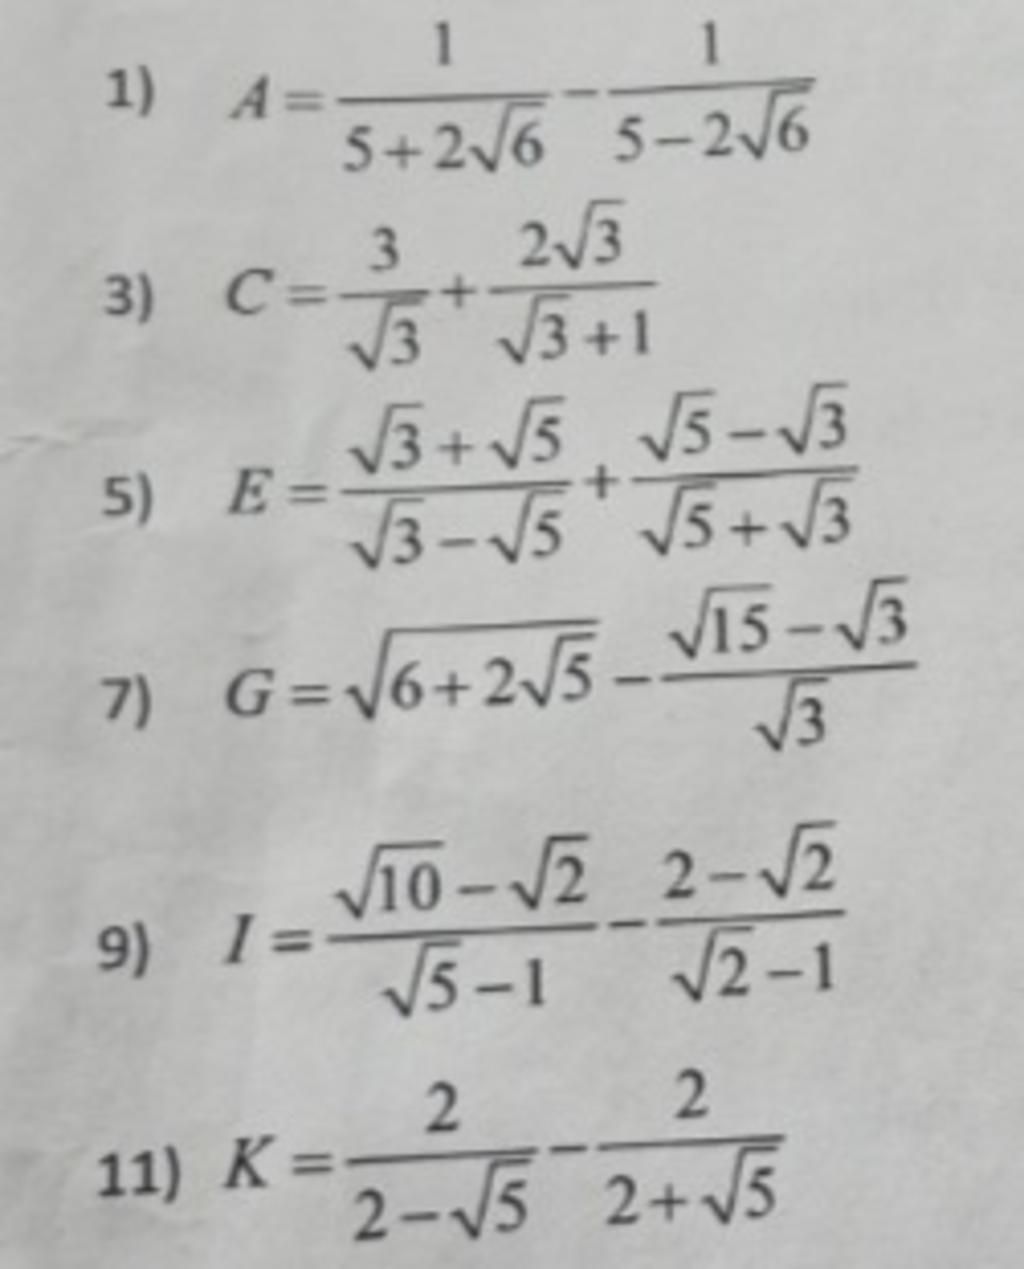 1) A = \frac{1}{5+2\sqrt{6}} - \frac{1}{5-2\sqrt{6}}
3) C = \frac{3}{\sqrt{3}} + \frac{2\sqrt{3}}{\sqrt{3}+1}
5) E = \frac{\sqrt{3}+\sqrt{5}}{\sqrt{3}-\sqrt{5}} + \frac{\sqrt{5}-\sqrt{3}}{\sqrt{5}+\sqrt{3}}
7) G = \sqrt{6+2\sqrt{5}} - \frac{\sqrt{15}-\sqrt{3}}{\sqrt{3}}
9) I = \frac{\sqrt{10}-\sqrt{2}}{\sqrt{5}-1} - \frac{2-\sqrt{2}}{\sqrt{2}-1}
11) K = \frac{2}{2-\sqrt{5}} - \frac{2}{2+\sqrt{5}}